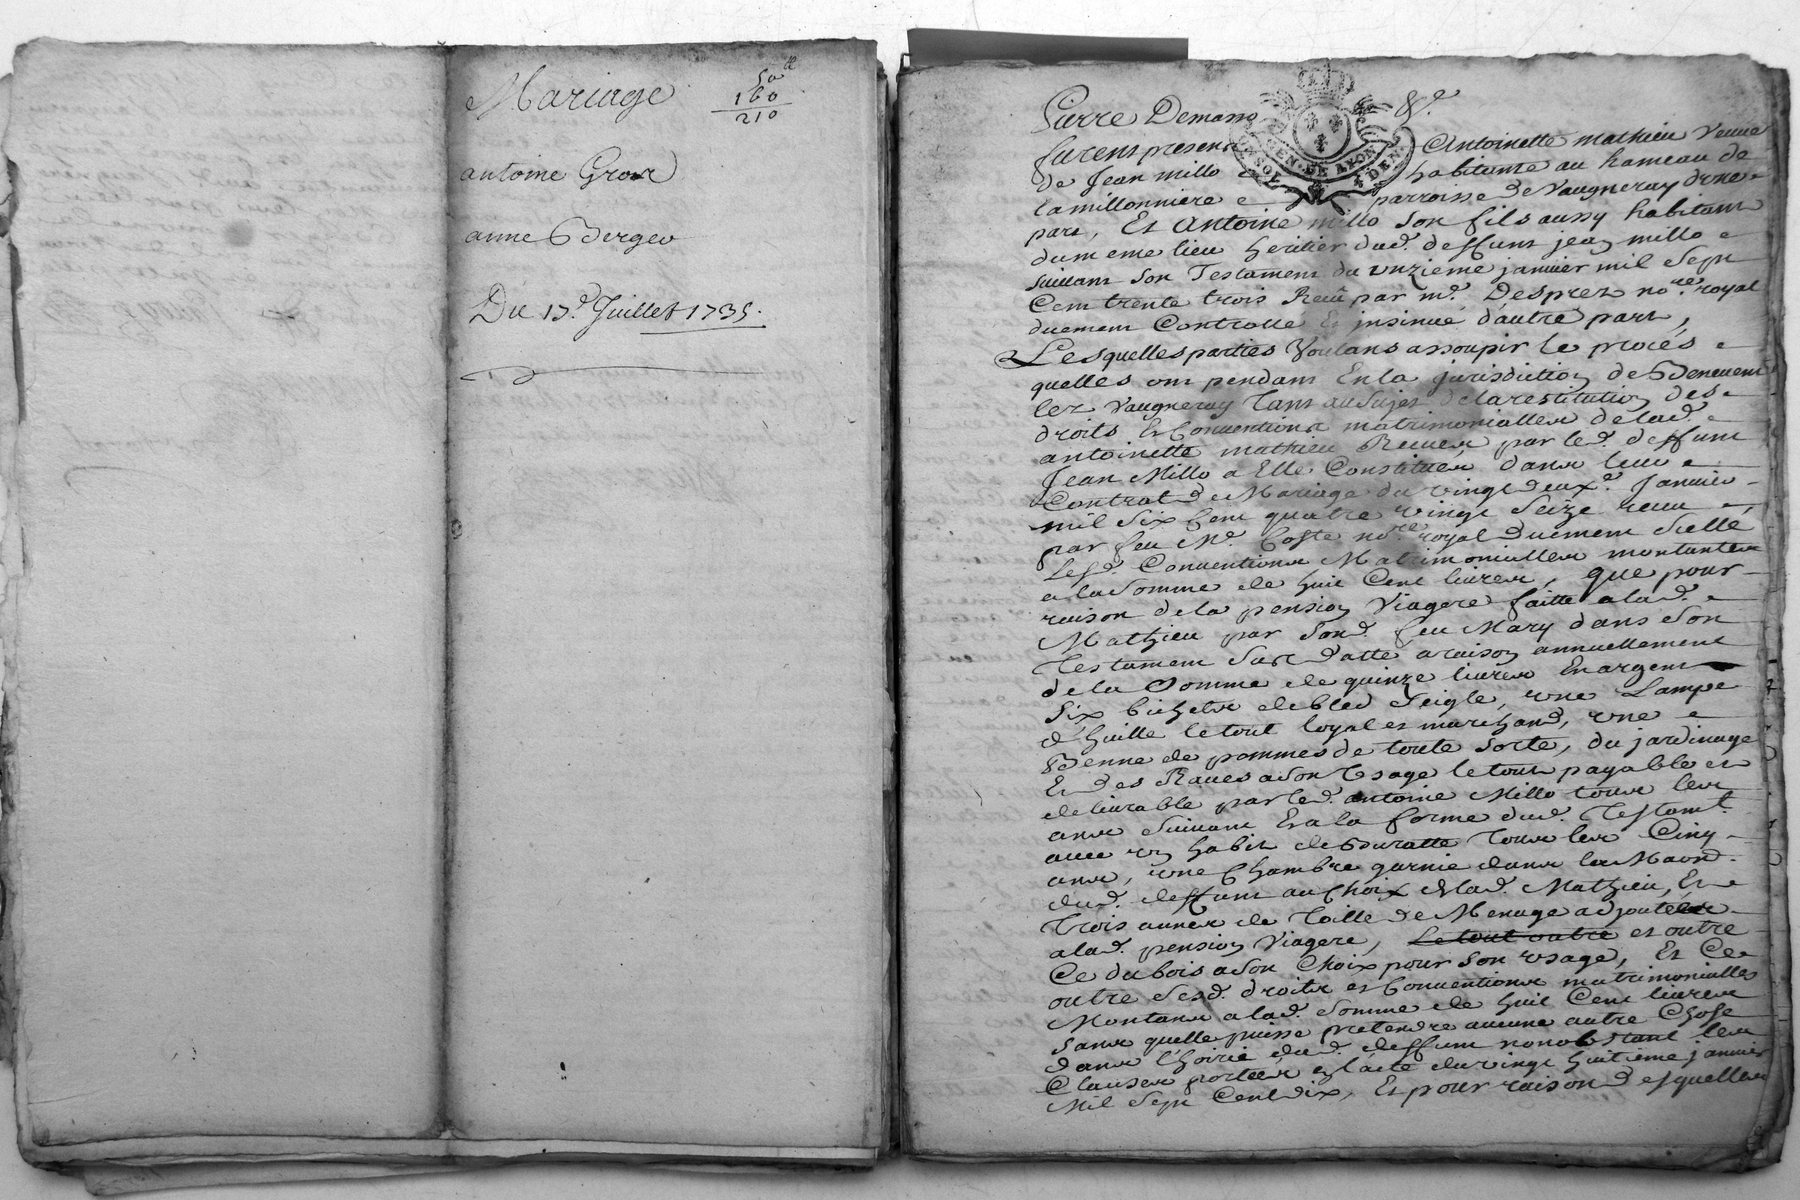 Mariage
50 tt
160
210
antoine Gros
anne Berger
Du 13e. Juillet 1735.
Pierre Demasso &a.
GEN. DE LYON
furent presents Antoinette mathieu veuve
de Jean millo habitante au hameau de
Lamillonniere parroisse de Vaugneray d'une
part, Et Antoine millo son fils aussy habitant
du meme lieu heritier dud. deffunt jean millo
suivant son Testament du unzieme janvier mil sept
Cent trente trois Receu par me. Desprez nore. royal
duement Controllé Et insinué d'autre part,
Lesquelles parties Voulans assoupir le procès
quelles ont pendant En la jurisdiction de
lez Vaugneray Tant au sujet de la restitution des
droits Et Conventions matrimonialles de lad.
antoinette mathieu Receues par led. deffunt
Jean Millo a Elle Constituée dans leur
Contrat de Mariage du vingt deuxe. Janvier
mil six Cent quatre vingt seize receu
par feu Me. Coste nore. royal Duement scellé
Lesd. Conventions Matrimonialles montantes
a la somme de huit Cent livres, que pour
raison de la pension Viagere faitte a lad.
Mathieu par sond. feu Mary dans son
Testament sur datté a raison annuellement
de la somme de quinze livres En argent
six bichets de bled seigle, une Lampe
d'huille le tout loyal et marchand, une
Benne de pommes de toute sorte, du jardinage
Et des Raves a son Usage le tout payable et
delivrable par led. antoine Millo tous les
ans suivant Et a la forme dud. Testamt.
avec un habit de Buratte Tous les Cinq
ans, une Chambre garnie dans la Maon.
dud. deffunt au Choix de lad. Mathieu, Et
Trois aunes de Toille de Menage adjoutées
a lad. pension Viagere, Le tout outre et outre
Ce du bois a son Choix pour son usage, Et Ce
outre sesd. droits et Conventions matrimonialles
Montans a lad. somme de huit Cent livres
sans quelle puisse pretendre aucune autre Chose
dans l'hoirie dud. deffunt nonobstant les
Clauses portées en l'acte du vingt huitieme janvier
Mil sept Cent dix, Et pour raison desquelles